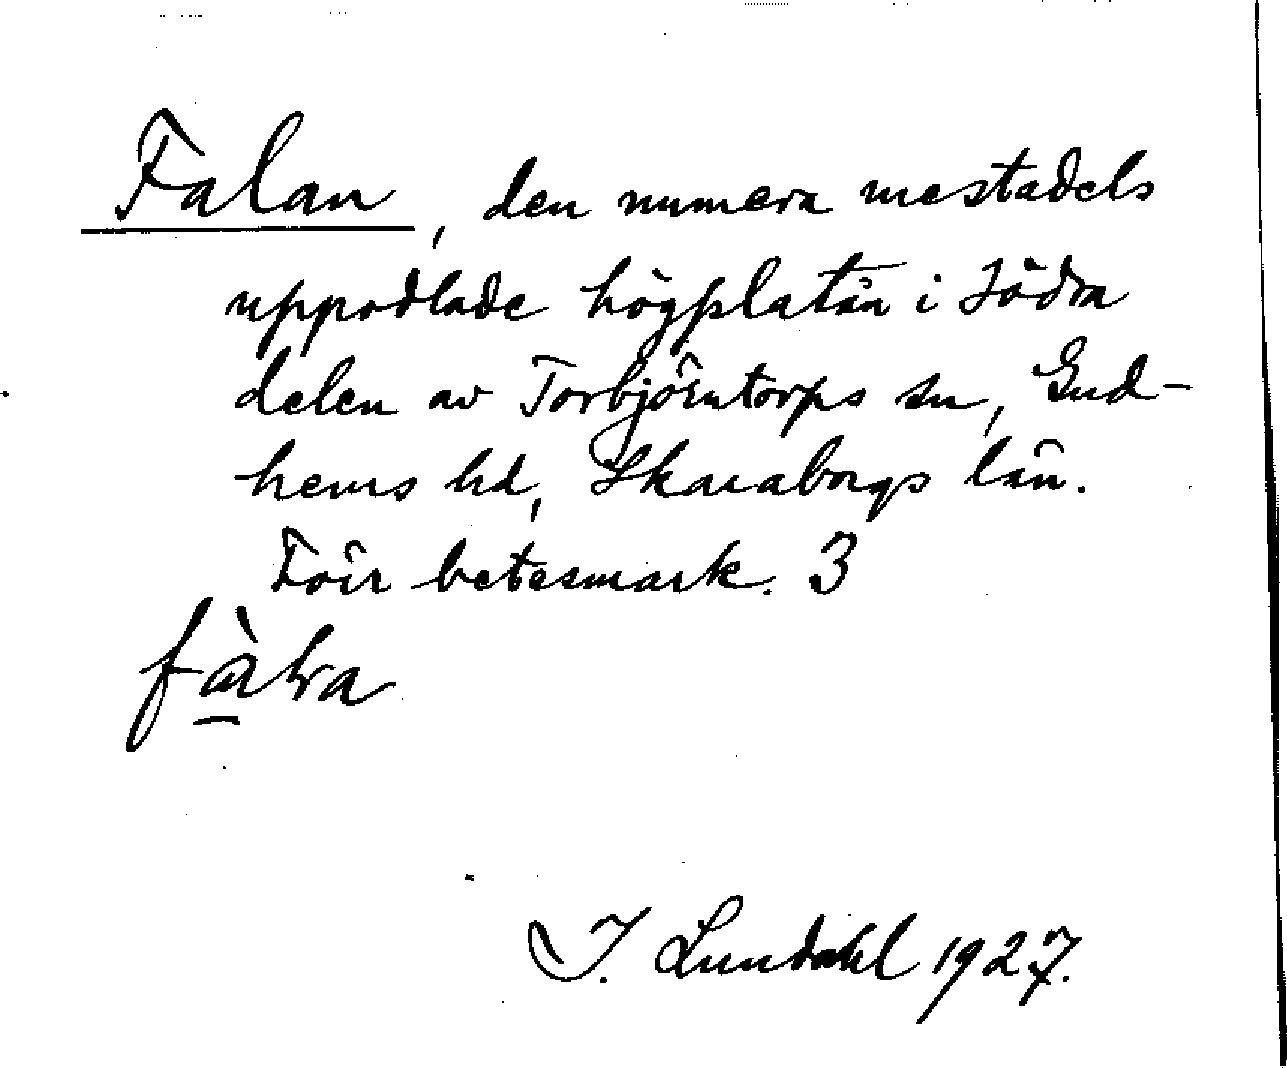 Falan, den numera mestadels
uppodlade högplatån i södra
delen av Torbjörntorps sn, Gud-
hems hd, Skaraborgs län.
Förr betesmark. 3
I. Lundahl 1927.